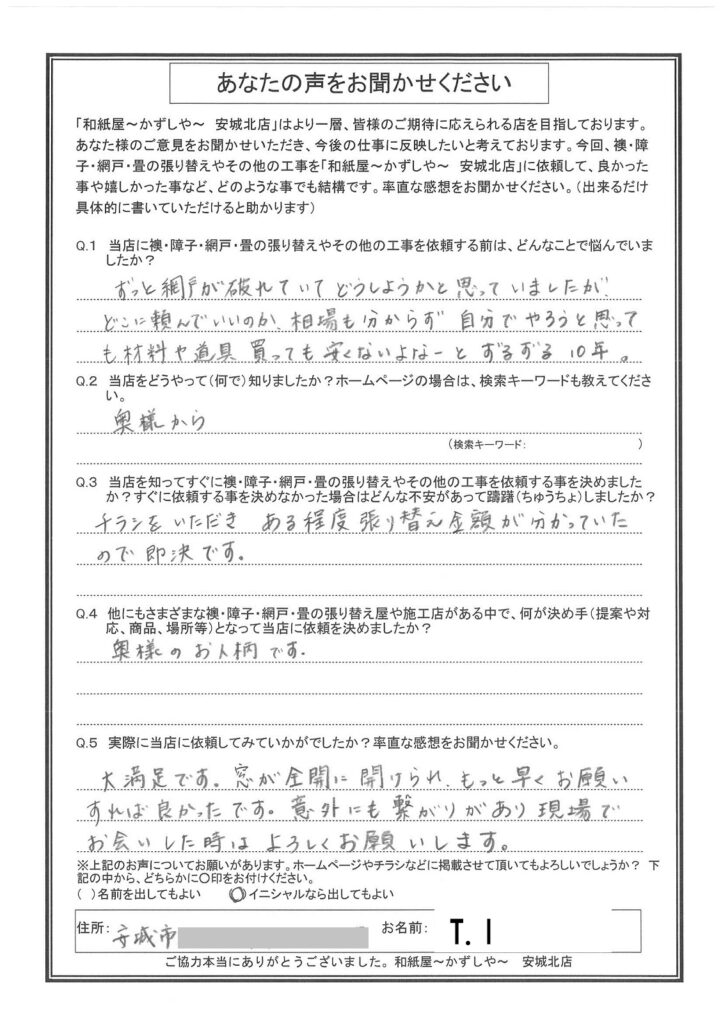 あなたの声をお聞かせください
「和紙屋～かずしや～　安城北店」はより一層、皆様のご期待に応えられる店を目指しております。
あなた様のご意見をお聞かせいただき、今後の仕事に反映したいと考えております。今回、襖・障
子・網戸・畳の張り替えやその他の工事を「和紙屋～かずしや～　安城北店」に依頼して、良かった
事や嬉しかった事など、どのような事でも結構です。率直な感想をお聞かせください。（出来るだけ
具体的に書いていただけると助かります）
Q.1　当店に襖・障子・網戸・畳の張り替えやその他の工事を依頼する前は、どんなことで悩んでいま
したか？
ずっと網戸が破れていてどうしようかと思っていましたが、
どこに頼んでいいのか、相場も分からず 自分でやろうと思って
も材料や道具 買っても安くないよなーと ずるずる10年。
Q.2　当店をどうやって（何で）知りましたか？ホームページの場合は、検索キーワードも教えてくださ
い。
奥様から
（検索キーワード：　　　　　　　　）
Q.3　当店を知ってすぐに襖・障子・網戸・畳の張り替えやその他の工事を依頼する事を決めました
か？すぐに依頼する事を決めなかった場合はどんな不安があって躊躇（ちゅうちょ）しましたか？
チラシをいただき ある程度張り替え金額が分かっていた
ので即決です。
Q.4　他にもさまざまな襖・障子・網戸・畳の張り替え屋や施工店がある中で、何が決め手（提案や対
応、商品、場所等）となって当店に依頼を決めましたか？
奥様のお人柄です.
Q.5　実際に当店に依頼してみていかがでしたか？率直な感想をお聞かせください。
大満足です。窓が全開に開けられ、もっと早くお願い
すれば良かったです。意外にも繋がりがあり現場で
お会いした時はよろしくお願いします。
※上記のお声についてお願いがあります。ホームページやチラシなどに掲載させて頂いてもよろしいでしょうか？　下
記の中から、どちらかに〇印をお付けください。
（ ）名前を出してもよい　　（〇）イニシャルなら出してもよい
住所： 安城市　　お名前： T. I
ご協力本当にありがとうございました。和紙屋～かずしや～　安城北店